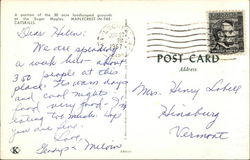 A portion of the 30 acre landscaped grounds
at the Sugar Maples, MAPLECREST-IN-THE-
CATSKILLS.
Dear Helen:
We are spending
a week here - about
300 people at this
place. Has warm days
and cool nights.
Food very good - I'm
eating too much. Hope
you are fine.
Love,
Gladys & Melvin
POST CARD
Address
Mrs. Henry Lobell
Hinsburg
Vermont